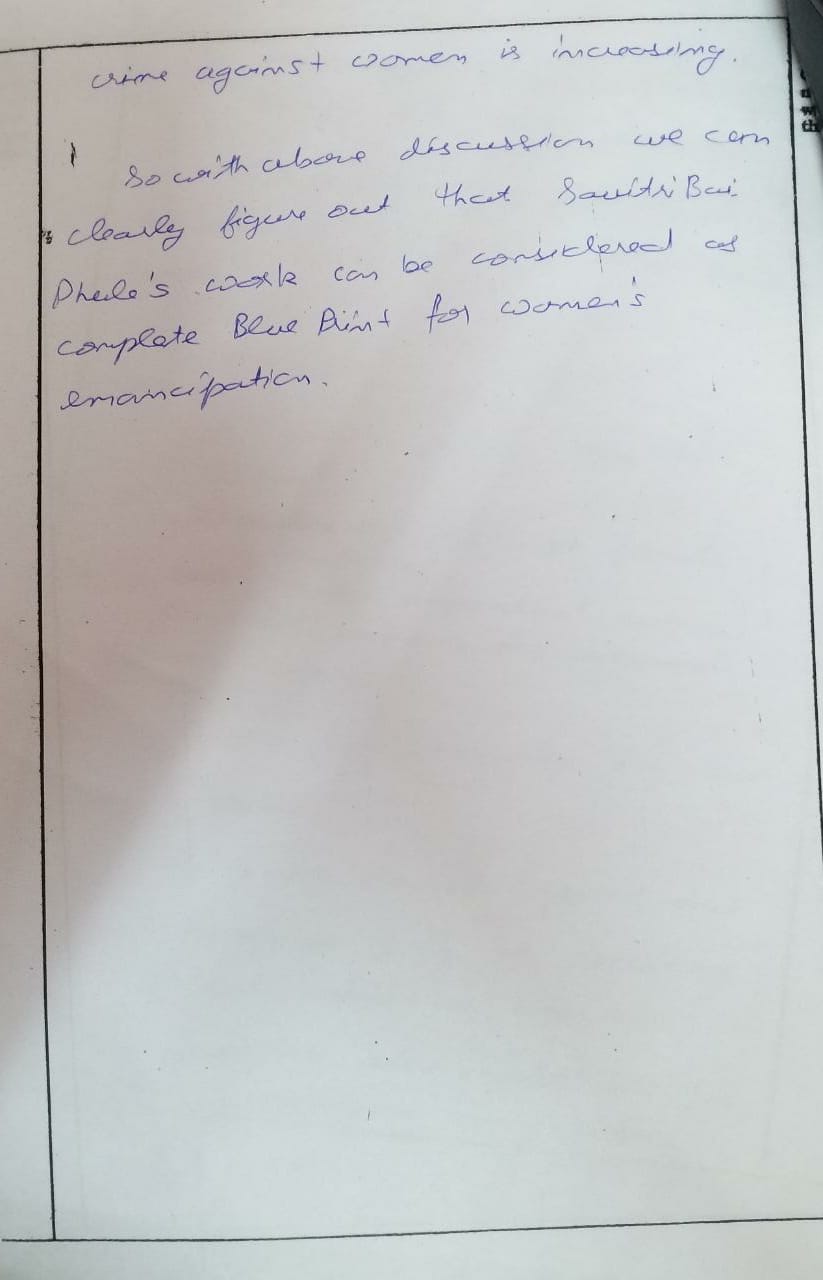 crime against women is increasing.
So with above discussion we can
clearly figure out that Savitri Bai
Phule's work can be considered as
complete Blue Print for women's
emancipation.